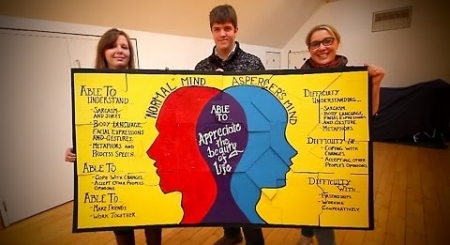 "NORMAL" MIND
ASPERGER'S MIND
ABLE TO
UNDERSTAND...
- SARCASM
AND JOKES
- BODY LANGUAGE,
FACIAL EXPRESSIONS
AND GESTURES
- METAPHORS AND
ABLE TO
- COPE WITH CHANGES
- ACCEPT OTHER PEOPLE'S
OPINIONS
ABLE TO
- MAKE FRIENDS
- WORK TOGETHER
ABLE TO
Appreciate
the
beauty
of
Life
DIFFICULTY
UNDERSTANDING...
- SARCASM
- BODY LANGUAGE,
FACIAL EXPRESSIONS
AND GESTURE
- METAPHORS
DIFFICULTY IN
- COPING WITH
CHANGES
- ACCEPTING OTHER
PEOPLE'S OPINIONS
DIFFICULTY
WITH...
- WORKING
COOPERATIVELY